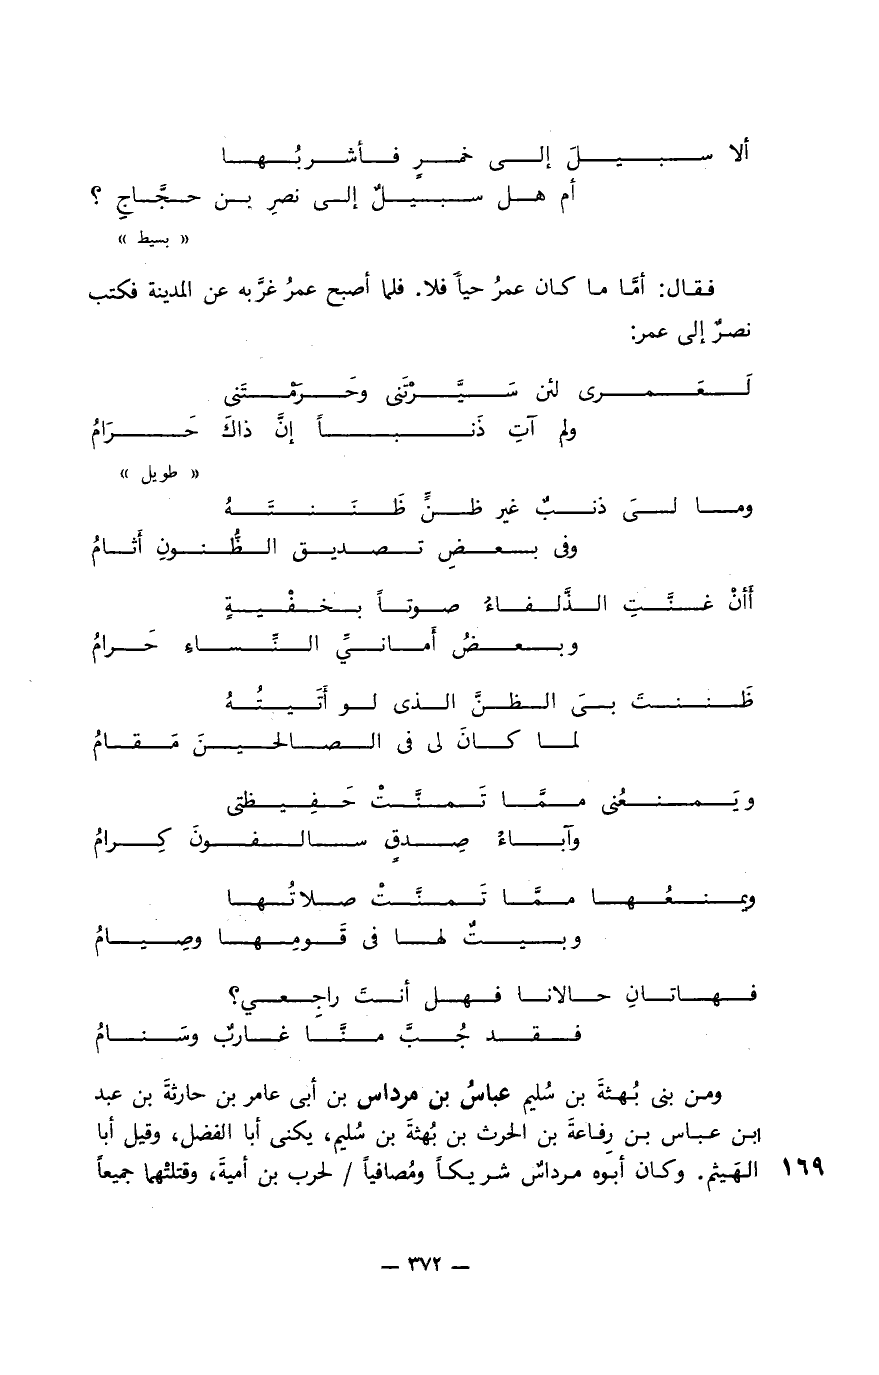 ألا سبيلَ إلى خمرٍ فأشربُها
أم هل سبيلٌ إلى نصرِ بن حجَّاجٍ ؟
« بسيط »
فقال: أمَّا ما كان عمرُ حياً فلا. فلما أصبح عمرُ غرَّبه عن المدينة فكتب
نصرٌ إلى عمر:
لَعَمرى لئن سَيَّرْتَنى وحَرَمْتَنى
ولم آتِ ذَنباً إنَّ ذاكَ حَرَامُ
« طويل »
وما لىَ ذنبٌ غير ظنٍّ ظَنَنتَهُ
وفى بعضِ تصديق الظُّنونِ أَثامُ
أَأنْ غنَّتِ الذَّلفاءُ صوتاً بخفْيةٍ
وبعضُ أمانيِّ النِّساء حَرامُ
ظَننتَ بىَ الظنَّ الذى لو أَتَيتُهُ
لما كانَ لى فى الصالحينَ مَقامُ
ويَمنعُنى ممَّا تَمنَّتْ حَفِيظتى
وآباءُ صِدقٍ سالفونَ كِرامُ
ويمنعُها ممَّا تَمنَّتْ صلاتُها
وبيتٌ لها فى قَومِها وصِيامُ
فهاتانِ حالانا فهل أنتَ راجِعي؟
فقد جُبَّ منَّا غاربٌ وسَنامُ
ومن بنى بُهثةَ بن سُليم عباسُ بن مرداس بن أبى عامر بن حارثةَ بن عبد
ابن عباس بن رِفاعةَ بن الحرث بن بُهثةَ بن سُليم، يكنى أبا الفضل، وقيل أبا
١٦٩ الهَيثم. وكان أبوه مرداسٌ شريكاً ومُصافياً / لحرب بن أميةَ، وقتلتْهما جميعاً
— ٣٧٢ —